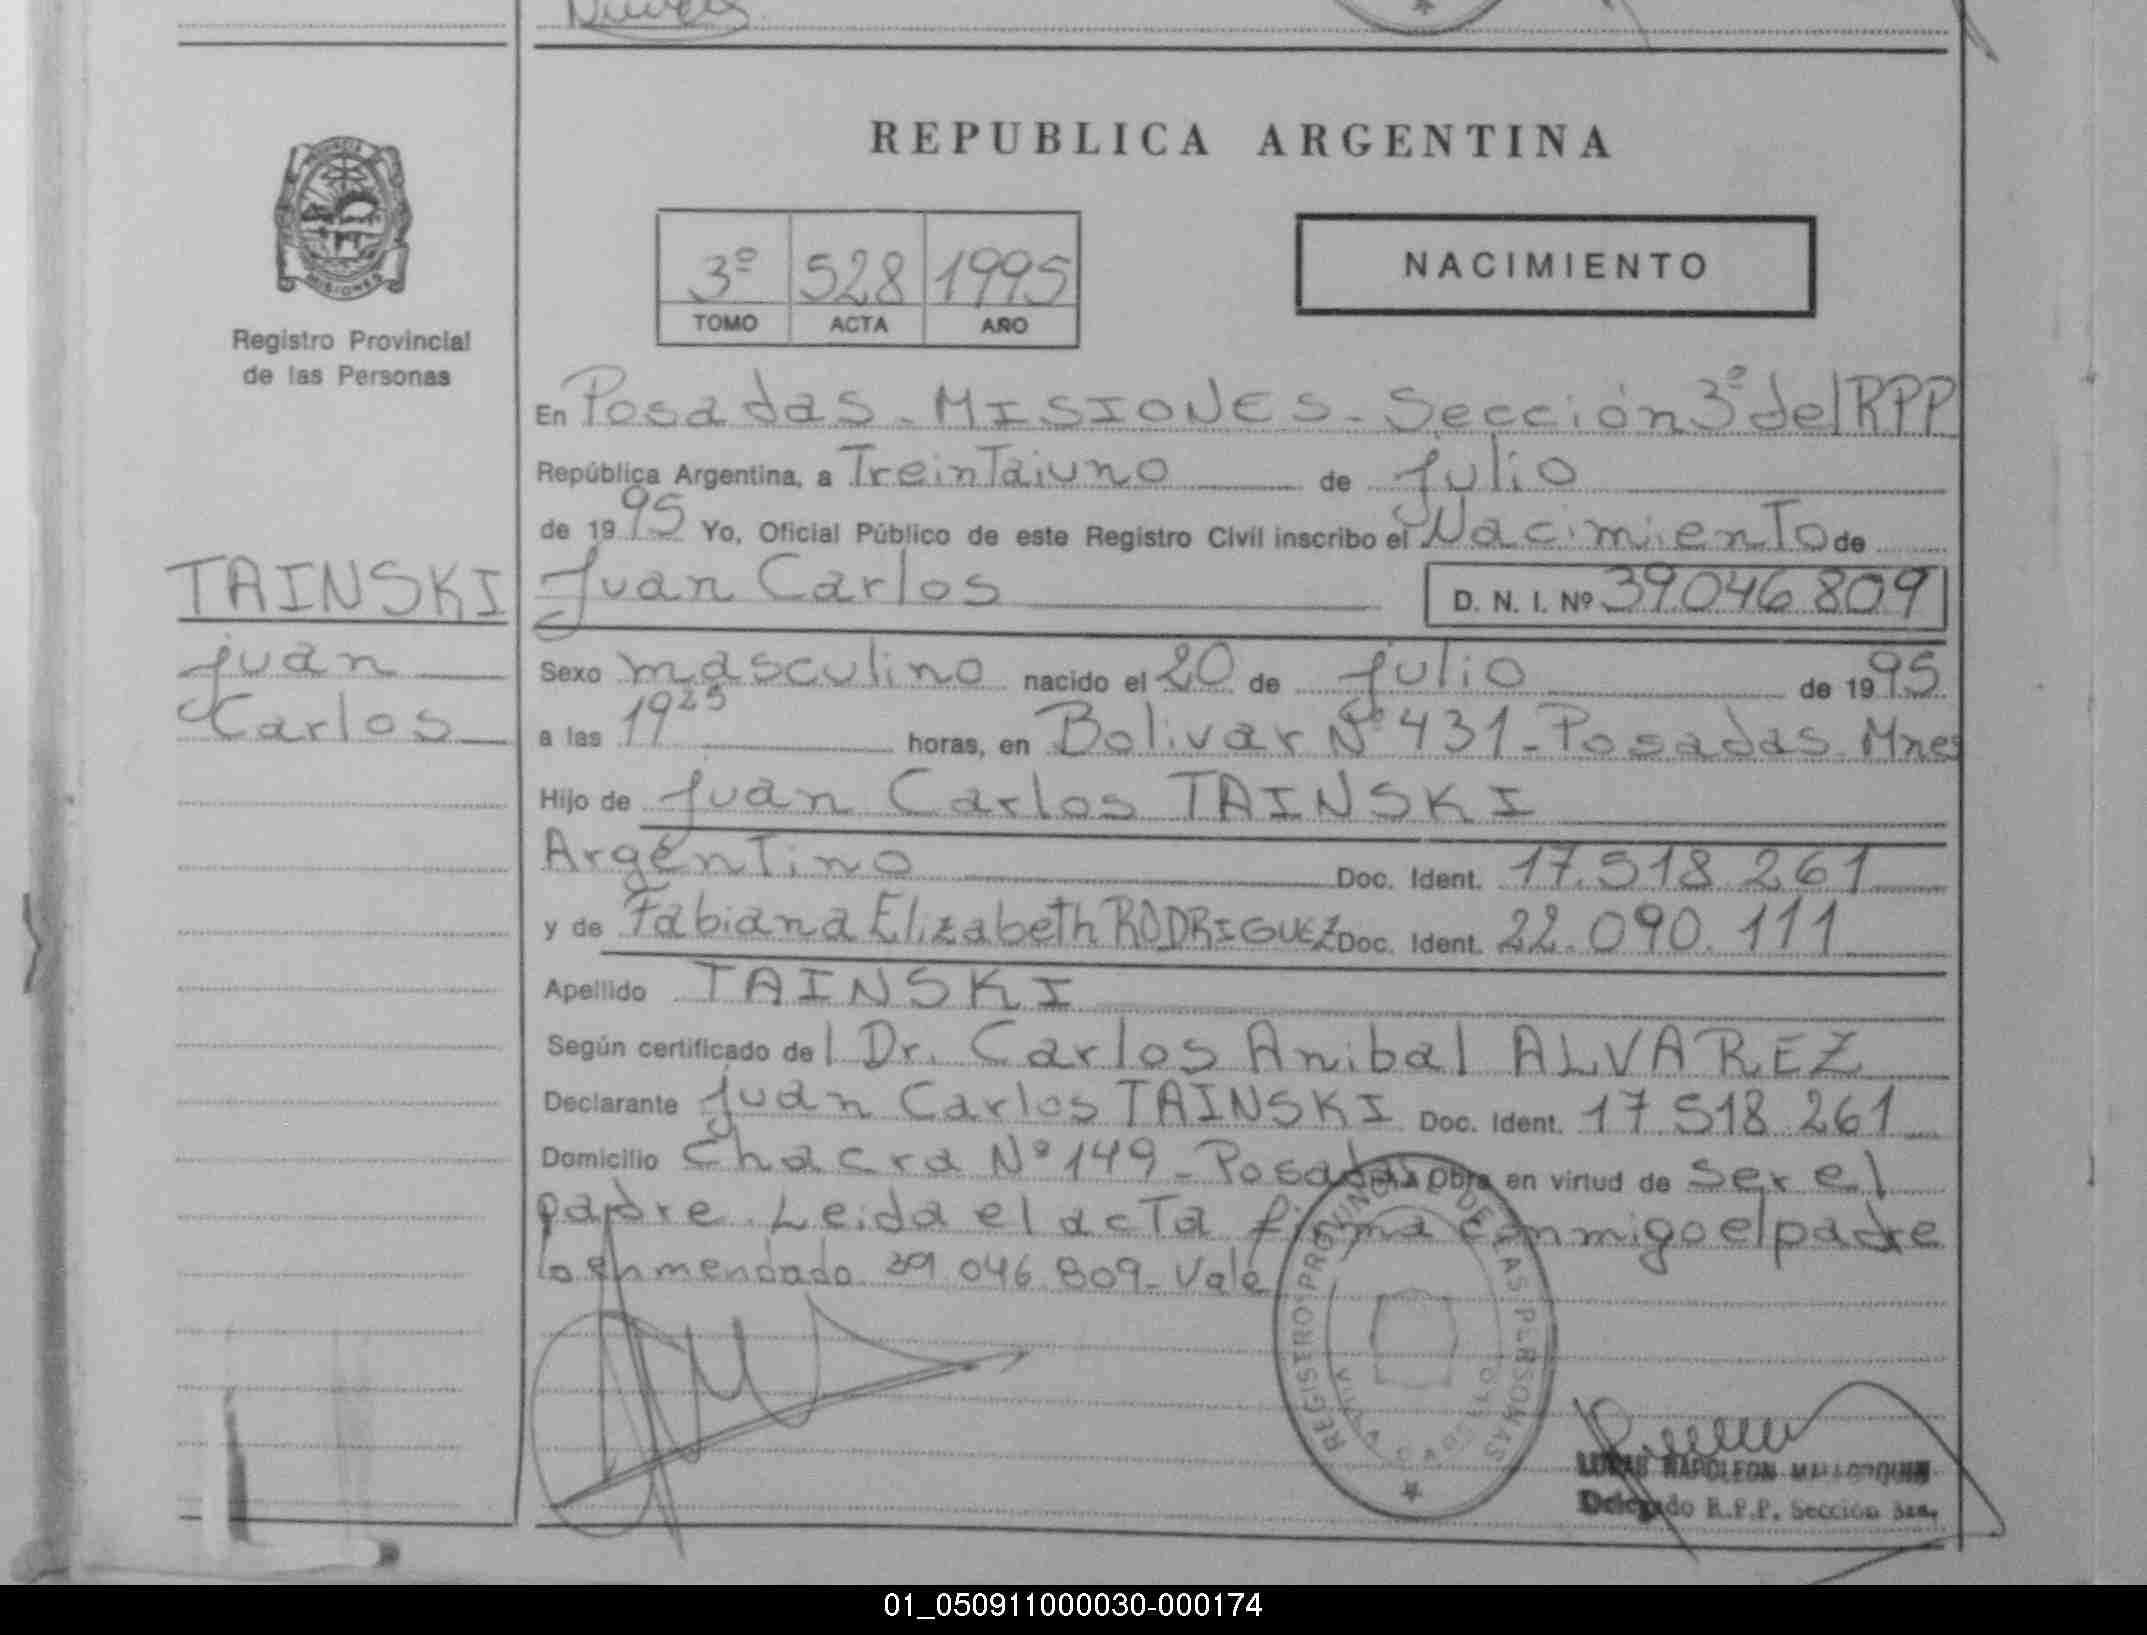 REPUBLICA ARGENTINA
PROVINCIA
MISIONES
Registro Provincial
de las Personas
3º 528 1995
TOMO ACTA AÑO
NACIMIENTO
En Posadas - MISIONES - Sección 3º del RPP
República Argentina, a Treintaiuno de Julio
de 1995 Yo, Oficial Público de este Registro Civil inscribo el Nacimiento de
TAINSKI
Juan
Carlos
Juan Carlos D. N. I. Nº 39.046.809
Sexo masculino nacido el 20 de Julio de 1995
a las 19 25 horas, en Bolivar Nº 431 - Posadas Mnes
Hijo de Juan Carlos TAINSKI
Argentino Doc. Ident. 17.518.261
y de Fabiana Elizabeth RODRIGUEZ Doc. Ident. 22.090.111
Apellido TAINSKI
Según certificado del Dr. Carlos Anibal ALVAREZ
Declarante Juan Carlos TAINSKI Doc. Ident. 17.518.261
Domicilio Chacra Nº 149 - Posadas Obra en virtud de ser el
padre. Leida el acta firma conmigo el padre
lo enmendado 39.046.809 - Vale
REGISTRO PROVINCIAL DE LAS PERSONAS
POSADAS
NAPOLEON
Delegado R.P.P. Sección 3ra.
01_050911000030-000174